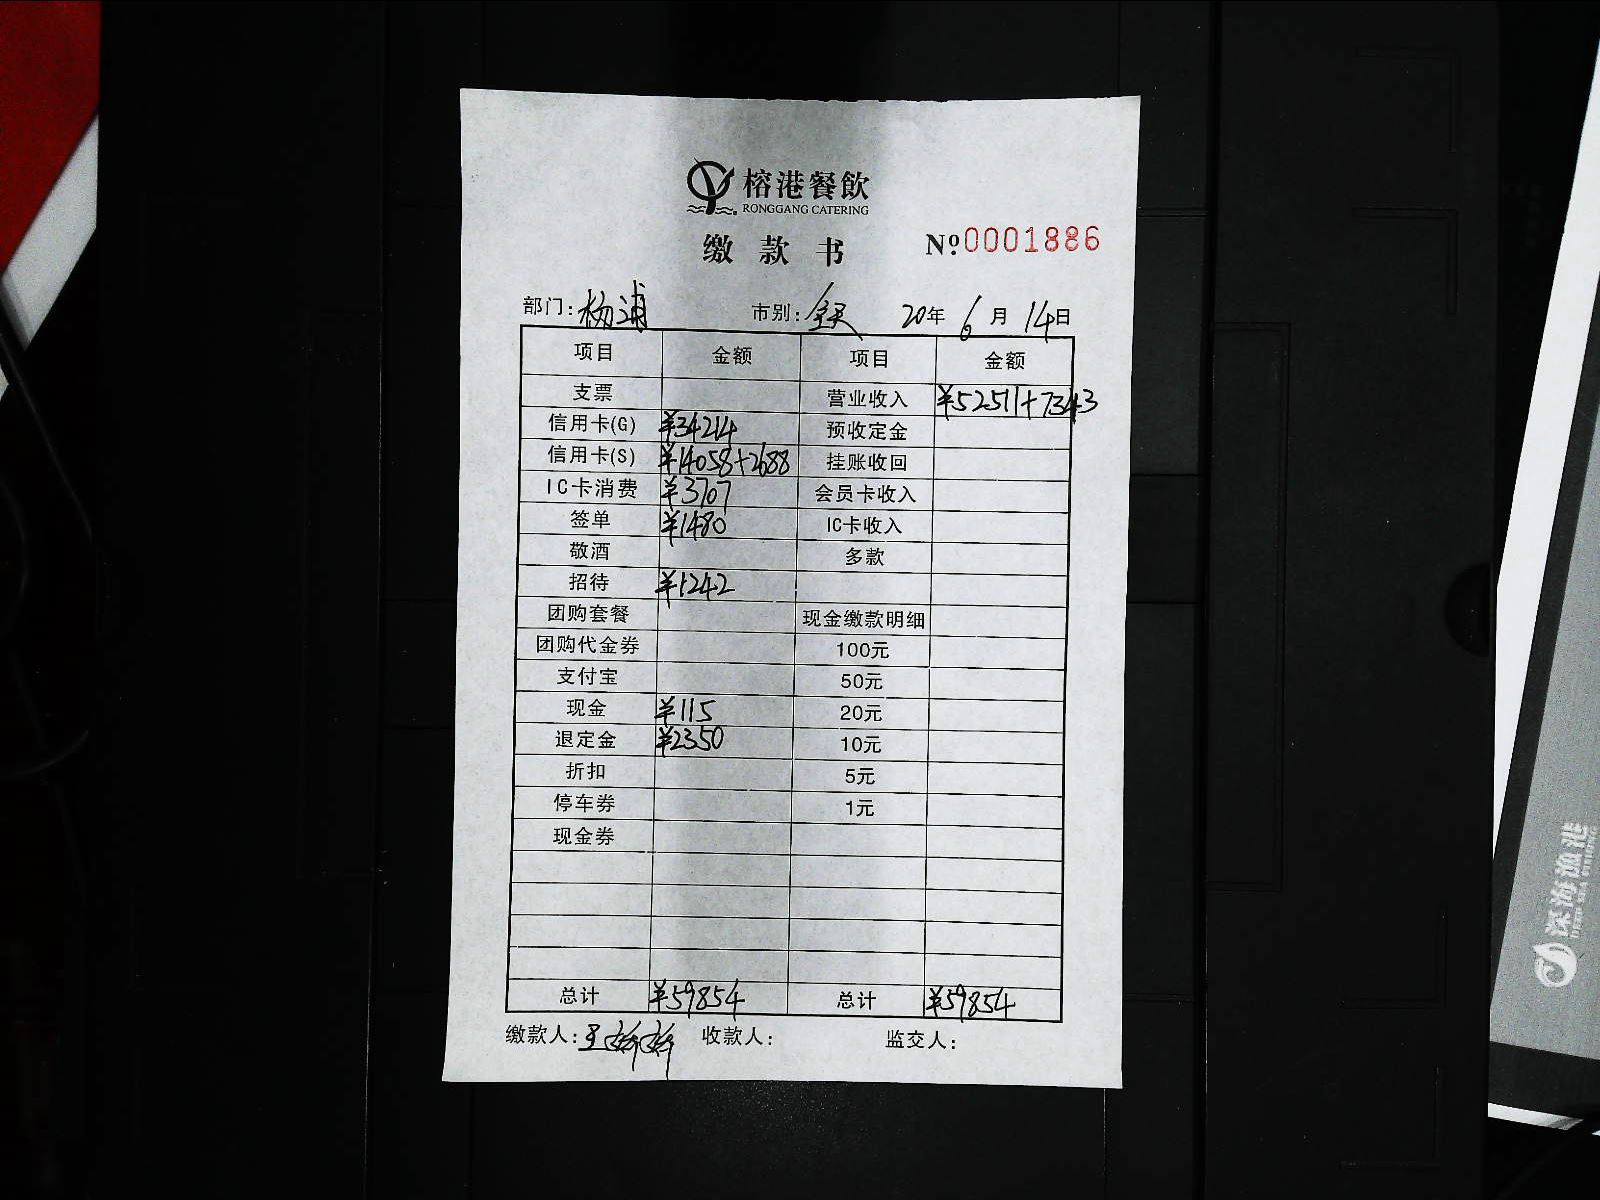 榕港餐飲
RONGGANG CATERING
缴款书 №0001886
部门：杨浦 市别：全天 20年6月14日
项目 金额 项目 金额
支票 营业收入 ¥52511+7343
信用卡(G) ¥34214 预收定金
信用卡(S) ¥14058+2688 挂账收回
IC卡消费 ¥3707 会员卡收入
签单 ¥1480 IC卡收入
敬酒 多款
招待 ¥1242
团购套餐 现金缴款明细
团购代金券 100元
支付宝 50元
现金 ¥115 20元
退定金 ¥2350 10元
折扣 5元
停车券 1元
现金券
总计 ¥59854 总计 ¥59854
缴款人： 收款人： 监交人：
深海渔港